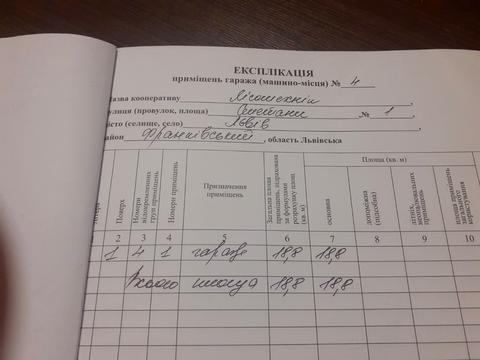 ЕКСПЛІКАЦІЯ
приміщень гаража (машино-місця) № 4
Назва кооперативу Лісотехнік
вулиця (провулок, площа) № 1
місто (селище, село) Львів
район Франківський, область Львівська
Літера
Поверх
Номери відокремлених груп приміщень
Номери приміщень
Призначення приміщень
Загальна площа приміщень, підрахована за формулами розрахунку площ (кв. м)
Площа (кв. м)
основна
допоміжна (підсобна)
літніх, неопалювальних приміщень
площа приміщень загального користування
2 3 4 5 6 7 8 9 10
1 4 1 гараж 18,8 18,8
Всього площа 18,8 18,8